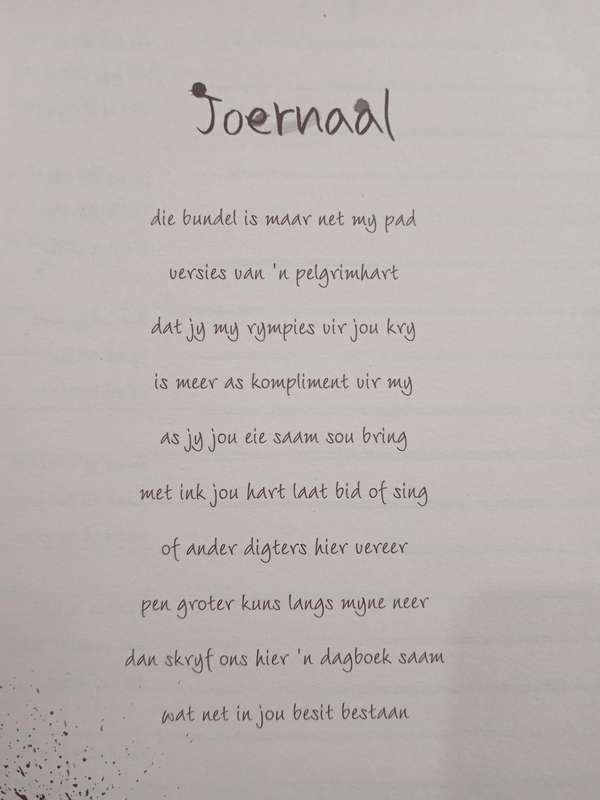 Joernaal
die bundel is maar net my pad
versies van 'n pelgrimhart
dat jy my rympies vir jou kry
is meer as kompliment vir my
as jy jou eie saam sou bring
met ink jou hart laat bid of sing
of ander digters hier vereer
pen groter kuns langs myne neer
dan skryf ons hier 'n dagboek saam
wat net in jou besit bestaan